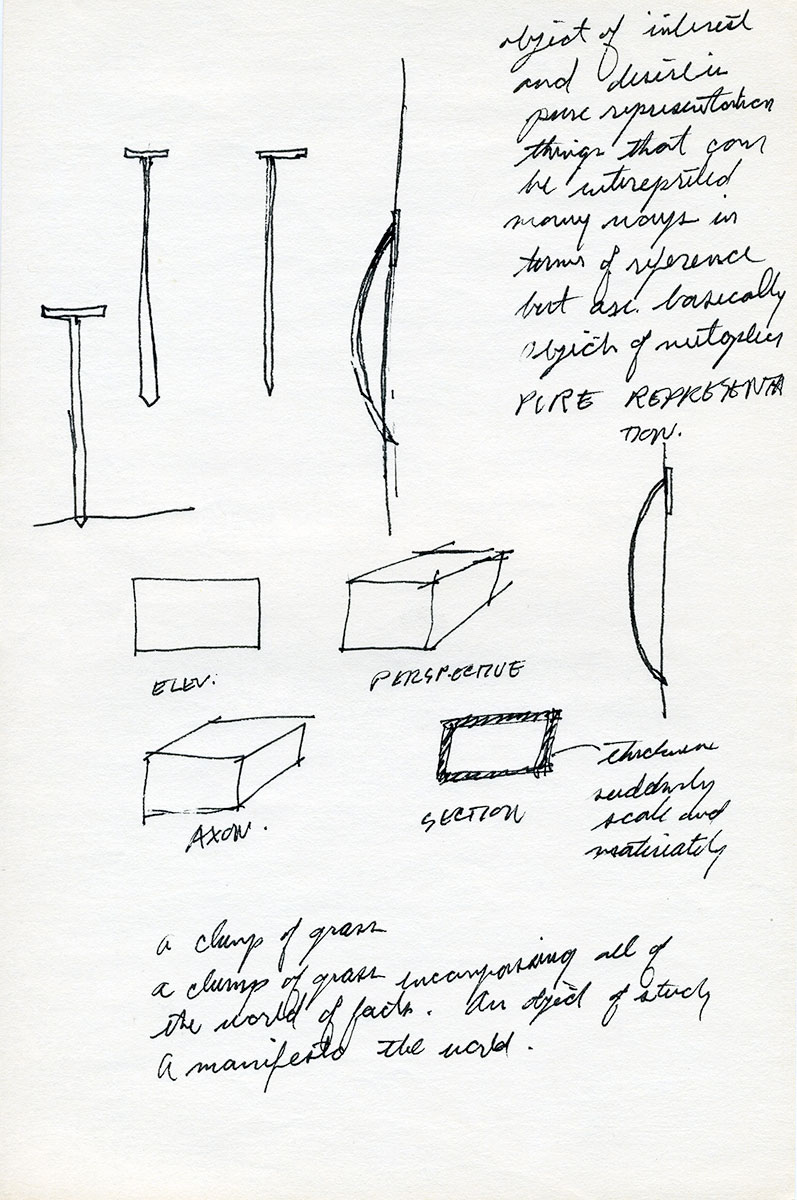 object of interest
and desire in
pure representation
things that can
be interepreted
many ways in
terms of reference
but are basically
objects of
PURE REPRESENTA
TION.
ELEV.
PERSPECTIVE
AXON.
SECTION
thickness
suddenly
scale and
materiality
a clump of grass
a clump of grass incorporating all of
the world of facts. An object of study
A manifesto the world.